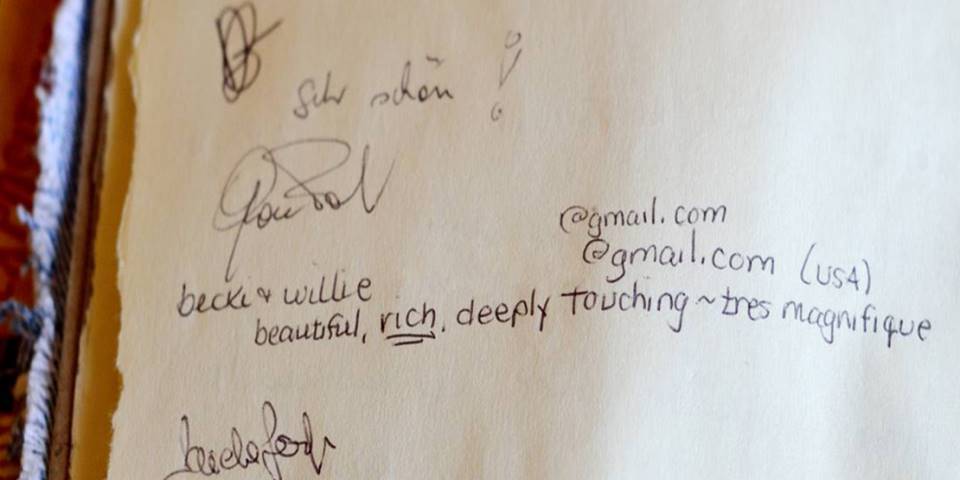 Sehr schön !
@gmail.com
@gmail.com (USA)
becki & willie
beautiful, rich, deeply touching ~ tres magnifique